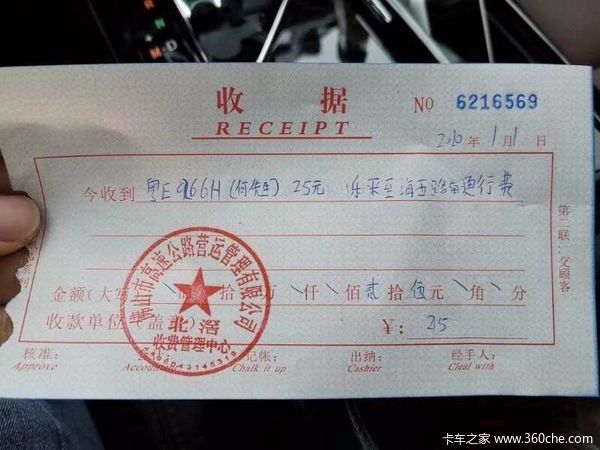 M-D
收 据
RECEIPT
NO 6216569
2020年1月1日
今收到 粤E 9166H(何先生) 25元 乐采至海五路南通行费
金额(大写) 佰 拾 万 \ 仟 \ 佰 贰 拾 伍 元 \ 角 \ 分
收款单位(盖章) ¥: 25
佛山市高速公路营运管理有限公司
北滘
收费管理中心
核准: 记帐: 出纳: 经手人:
Approve Accounting Chalk it up Cashier Cleal with
第二联:交顾客
卡车之家 www.360che.com